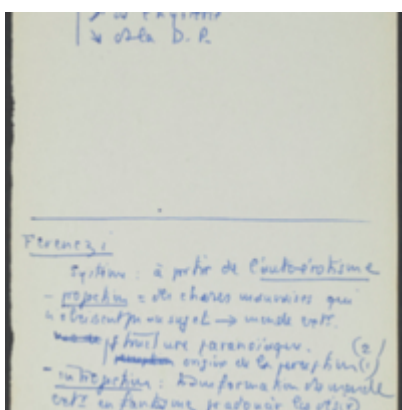 → de l'hystérie
→ de la D.P.
Ferenczi
système : à partir de l'autoérotisme
- projection = des choses mauvaises qui
n'obéissent pas au sujet → monde extr.
structure paranoïaque. (2)
origine de la perception (1)
- introjection : transformation du monde
extr en fantasme